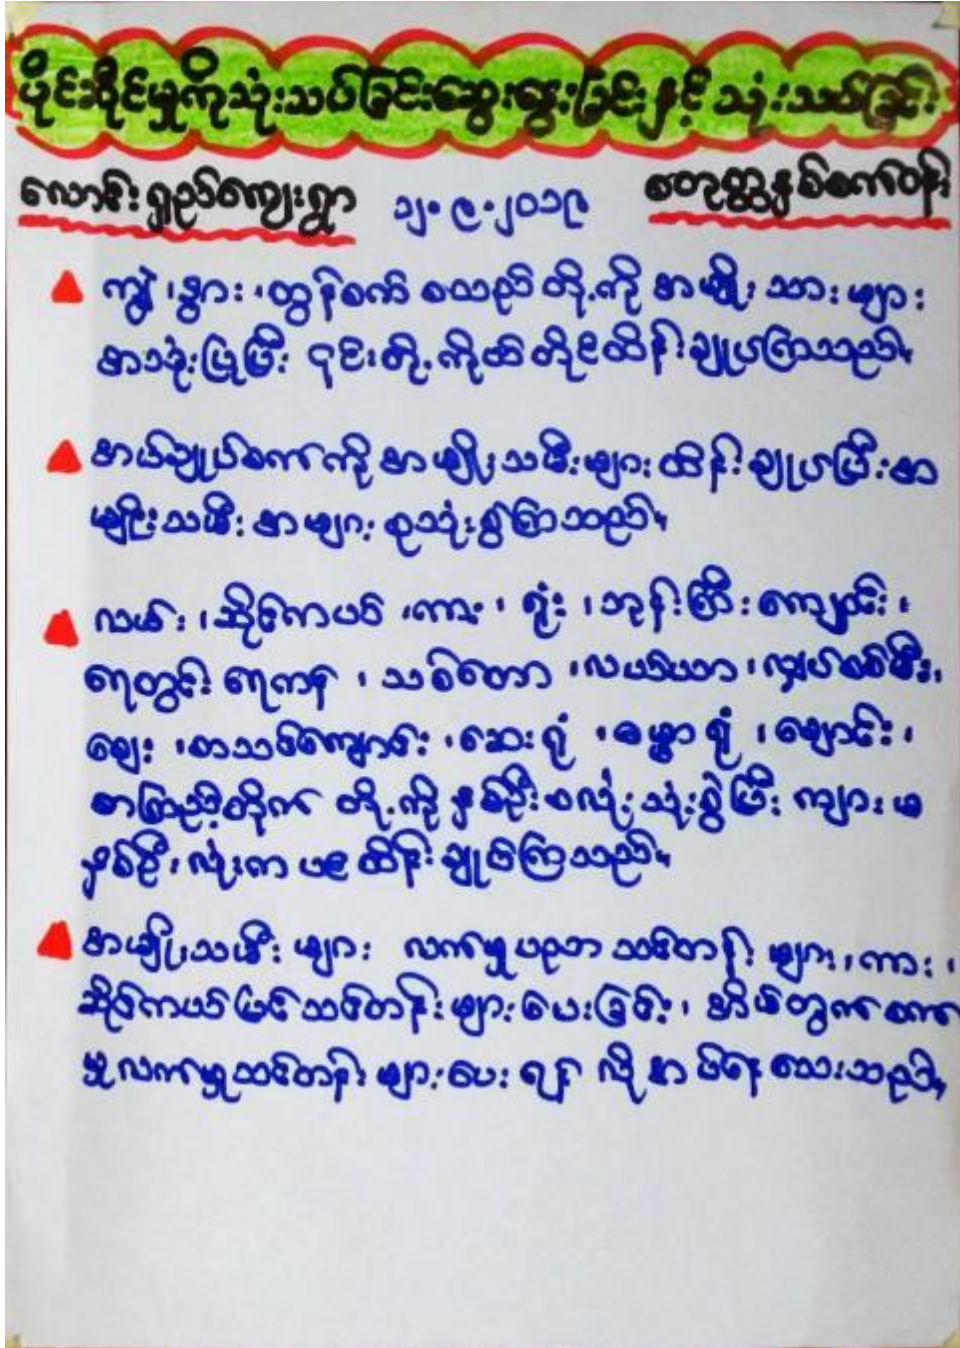 ပိုင်ဆိုင်မှုကိုသုံးသပ်ခြင်းဆွေးနွေးခြင်းနှင့် သုံးသပ်ခြင်း
လောင်းရှည်ကျေးရွာ ၁၂.၉.၂၀၁၉ စတုတ္ထနှစ်စက်ဝန်း
ကျွဲ၊ နွား၊ ထွန်စက် စသည်တို့ကို အမျိုးသားများ
အသုံးပြုပြီး ၎င်းတို့ကိုယ်တိုင်ထိန်းချုပ်ကြသည်။
အပ်ချုပ်စက်ကို အမျိုးသမီးများထိန်းချုပ်ပြီး အ
မျိုးသမီး အများစုသုံးစွဲကြသည်။
လယ်၊ ဆိုင်ကယ်၊ ကား၊ ရုံး၊ ဘုန်းကြီးကျောင်း၊
ရေတွင်း ရေကန်၊ သစ်တော၊ လယ်ယာ၊ လျှပ်စစ်မီး၊
ဈေး၊ စာသင်ကျောင်း၊ ဆေးရုံ၊ ဓမ္မာရုံ၊ ချောင်း၊
စာကြည့်တိုက် တို့ကို နှစ်ဦးစလုံး သုံးစွဲပြီး ကျား မ
နှစ်ဦးလုံးက ပင်ထိန်းချုပ်ကြသည်။
အမျိုးသမီးများ လက်မှုပညာ သင်တန်းများ၊ ကား၊
ဆိုင်ကယ်ပြင်သင်တန်းများပေးခြင်း၊ အိမ်တွက်စက်
မှုလက်မှုသင်တန်းများပေးရန် လိုအပ်နေသေးသည်။